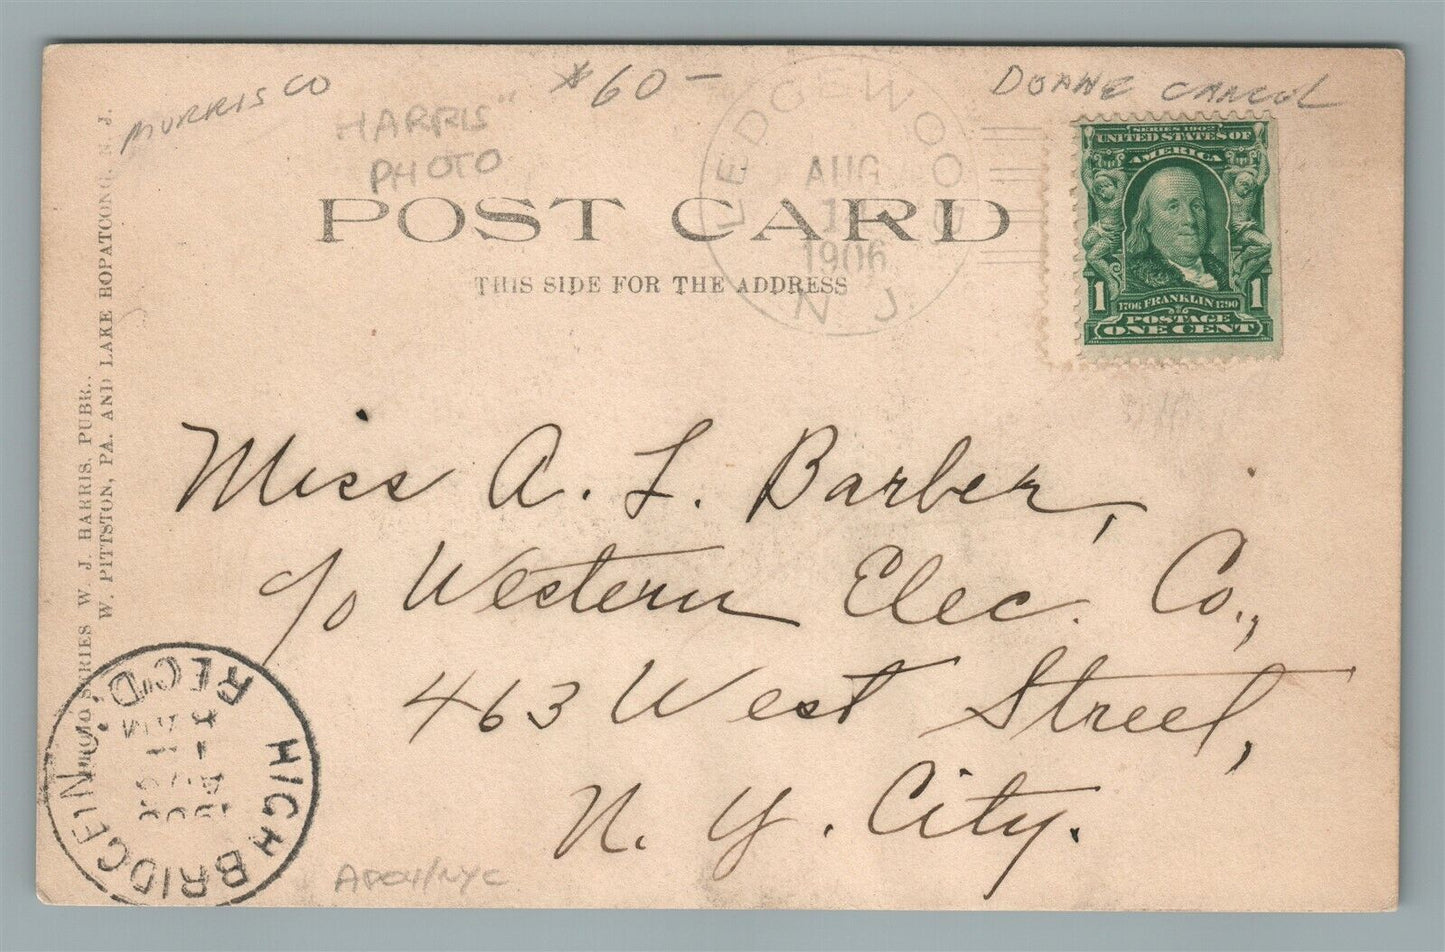 MORRIS CO
$60-
DOANE CANCEL
"HARRIS"
PHOTO
POST CARD
THIS SIDE FOR THE ADDRESS
LEDGEWOOD
AUG
1906
N J.
SERIES 1902
UNITED STATES OF
AMERICA
1 1
1706 FRANKLIN 1790
POSTAGE
ONE CENT
PHOTO SERIES W. J. HARRIS, PUBR.,
W. PITTSTON, PA. AND LAKE HOPATCONG, N. J.
Miss A. L. Barber,
c/o Western Elec. Co.,
463 West Street,
N. Y. City.
HIGH BRIDGE N.J.
REC'D.
APO4/NYC